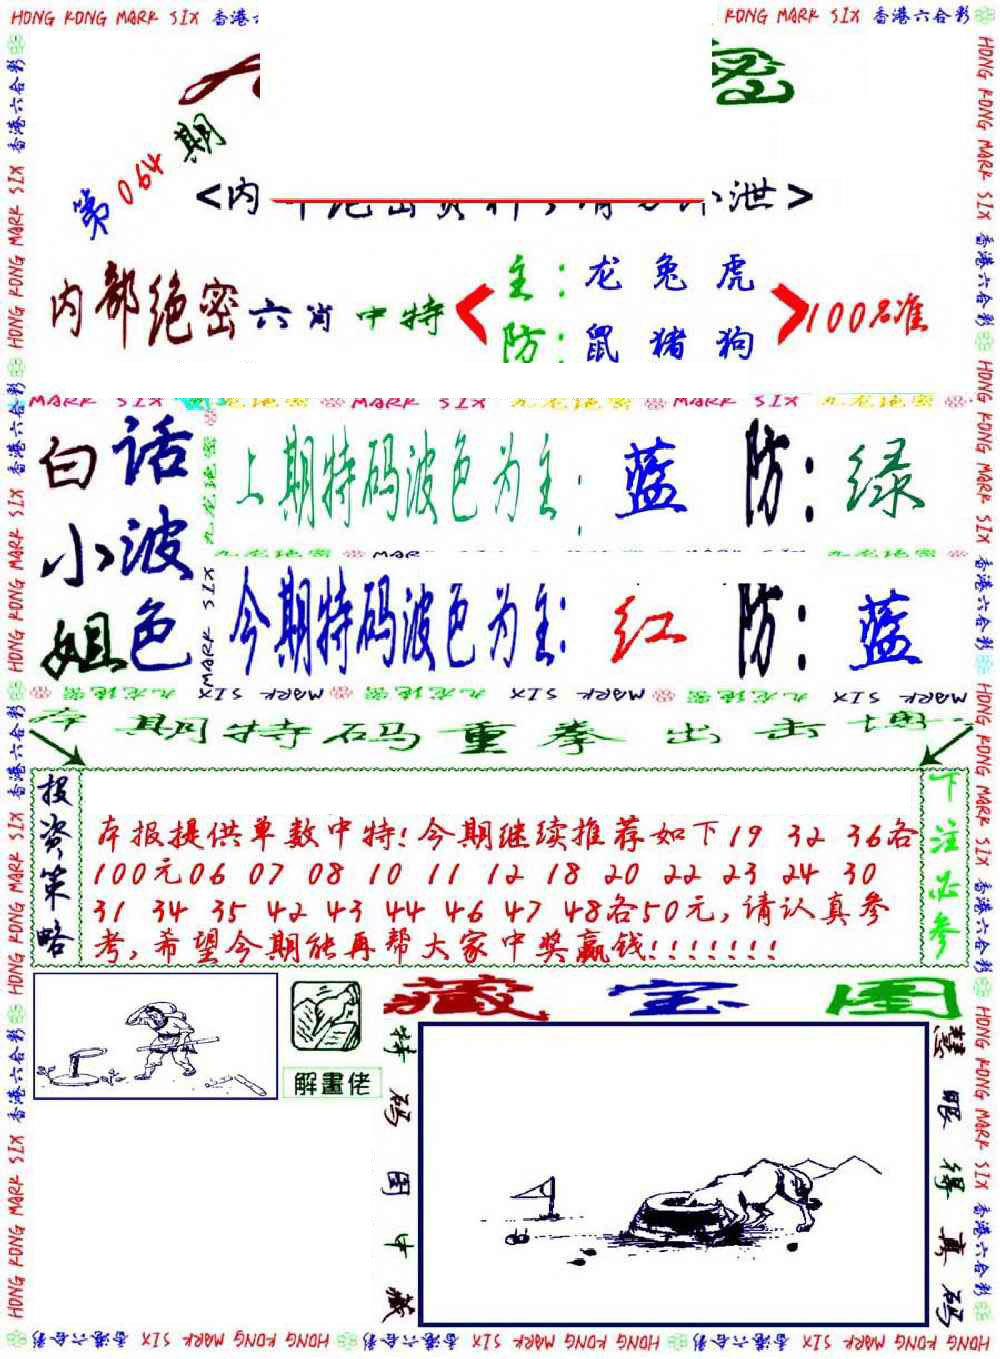 HONG KONG MARK SIX 香港六合彩
KONG MARK SIX 香港六合彩
密
第064期
<内
泄>
内部绝密六肖中特
主:龙 兔 虎
防:鼠 猪 狗
100%准
MARK SIX 九龙绝密 MARK SIX 九龙绝密 MARK SIX 九龙绝密
白小姐
话波色
上期特码波色为主: 蓝 防: 绿
九龙绝密 MARK SIX 九龙绝密
今期特码波色为主: 红 防: 蓝
九龙绝密 MARK SIX 九龙绝密 MARK SIX 九龙绝密 MARK SIX
本期特码重拳出击
投资策略
本报提供单数中特!今期继续推荐如下19 32 36各
100元06 07 08 10 11 12 18 20 22 23 24 30
31 34 35 42 43 44 46 47 48各50元,请认真参
考,希望今期能再帮大家中奖赢钱!!!!!!!
下注必参
解畫佬
藏宝图
特码图中藏
慧眼得真码
HONG KONG MARK SIX 香港六合彩